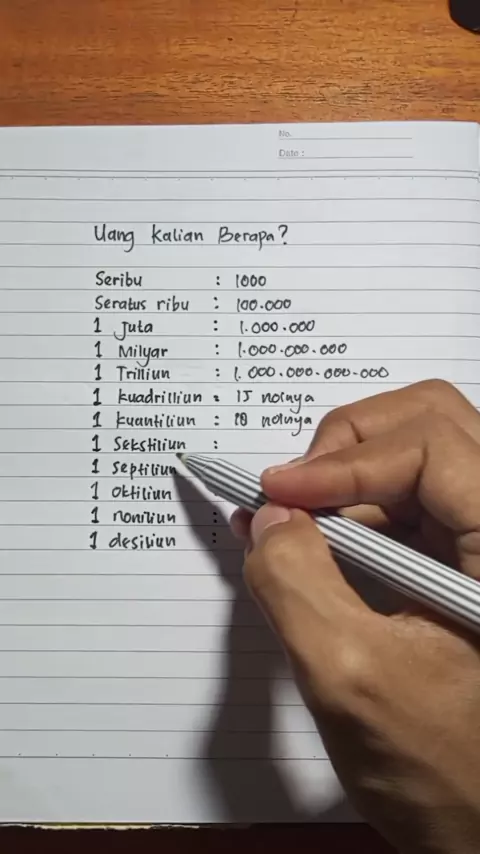 No.
Date :
Uang Kalian Berapa?
Seribu : 1000
Seratus ribu : 100.000
1 Juta : 1.000.000
1 Milyar : 1.000.000.000
1 Trilliun : 1.000.000.000.000
1 kuadrilliun : 15 nolnya
1 kuantiliun : 18 nolnya
1 Sekstiliun :
1 septiliun
1 oktiliun :
1 noniliun :
1 desiliun :